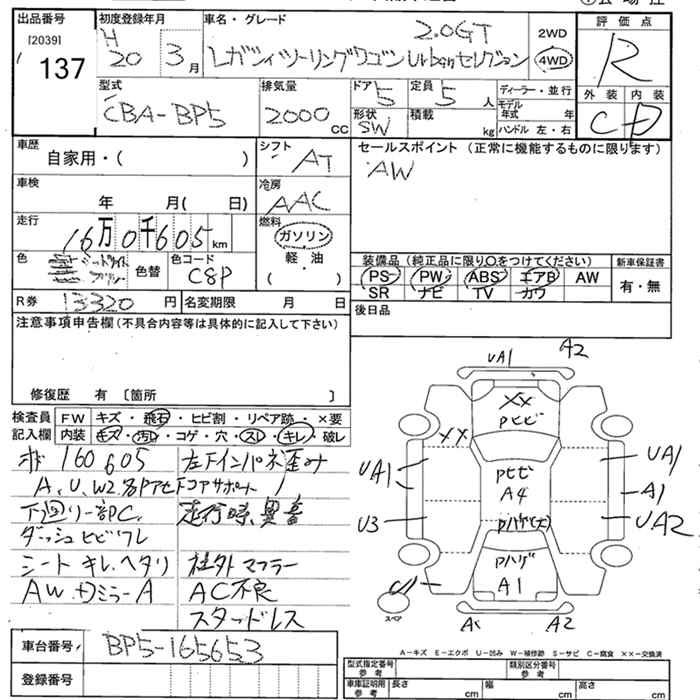 出品番号 初度登録年月 車名・グレード 評価点
[2039] 137
H 20 3月
2.0GT
レガシィツーリングワゴン Urbanセレクション
2WD
4WD
R
型式 排気量 ドア 定員 ディーラー・並行
CBA-BP5 2000 CC 5 5人
モデル年式 年
形状 積載
SW kg ハンドル 左・右
外装 内装
C D
車歴 シフト セールスポイント (正常に機能するものに限ります)
自家用・( ) AT AW
車検 冷房
年 月( 日) AAC
走行 燃料
16万0千605km ガソリン
軽・油
( )
色 色替 色コード
C8P
装備品 (純正品に限り○をつけてください) 新車保証書
PS PW ABS エアB AW 有・無
SR ナビ TV カワ
R券 13320円 名変期限 月 日
後日品
注意事項申告欄(不具合内容等は具体的に記入して下さい)
修復歴 有 〔箇所 〕
検査員 FW キズ・飛石・ヒビ割・リペア跡・×要
記入欄 内装 キズ・汚れ・コゲ・穴・スレ・キレ・破レ
160605 左下インパネ歪み
A、U、W2、各Pアセ Fコアサポート
下廻リ一部PC、 走行時異音
ダッシュヒビワレ
シート キレ、ヘタリ 社外マフラー
AW、ミラーA AC不良
スタッドレス
車台番号 BP5-165653
登録番号
UA1 A2
XX
Pヒビ
XX
UA1 UA1
Pヒビ
A4
A1
U3 UA2
Pハゲ
A1
スペア
A2
A-キズ E-エクボ U-凹み W-補修跡 S-サビ C-腐食 ××-交換済
型式指定番号 類別区分番号
参考 参考
車庫証明用 長さ 幅 高さ
参考 cm cm cm